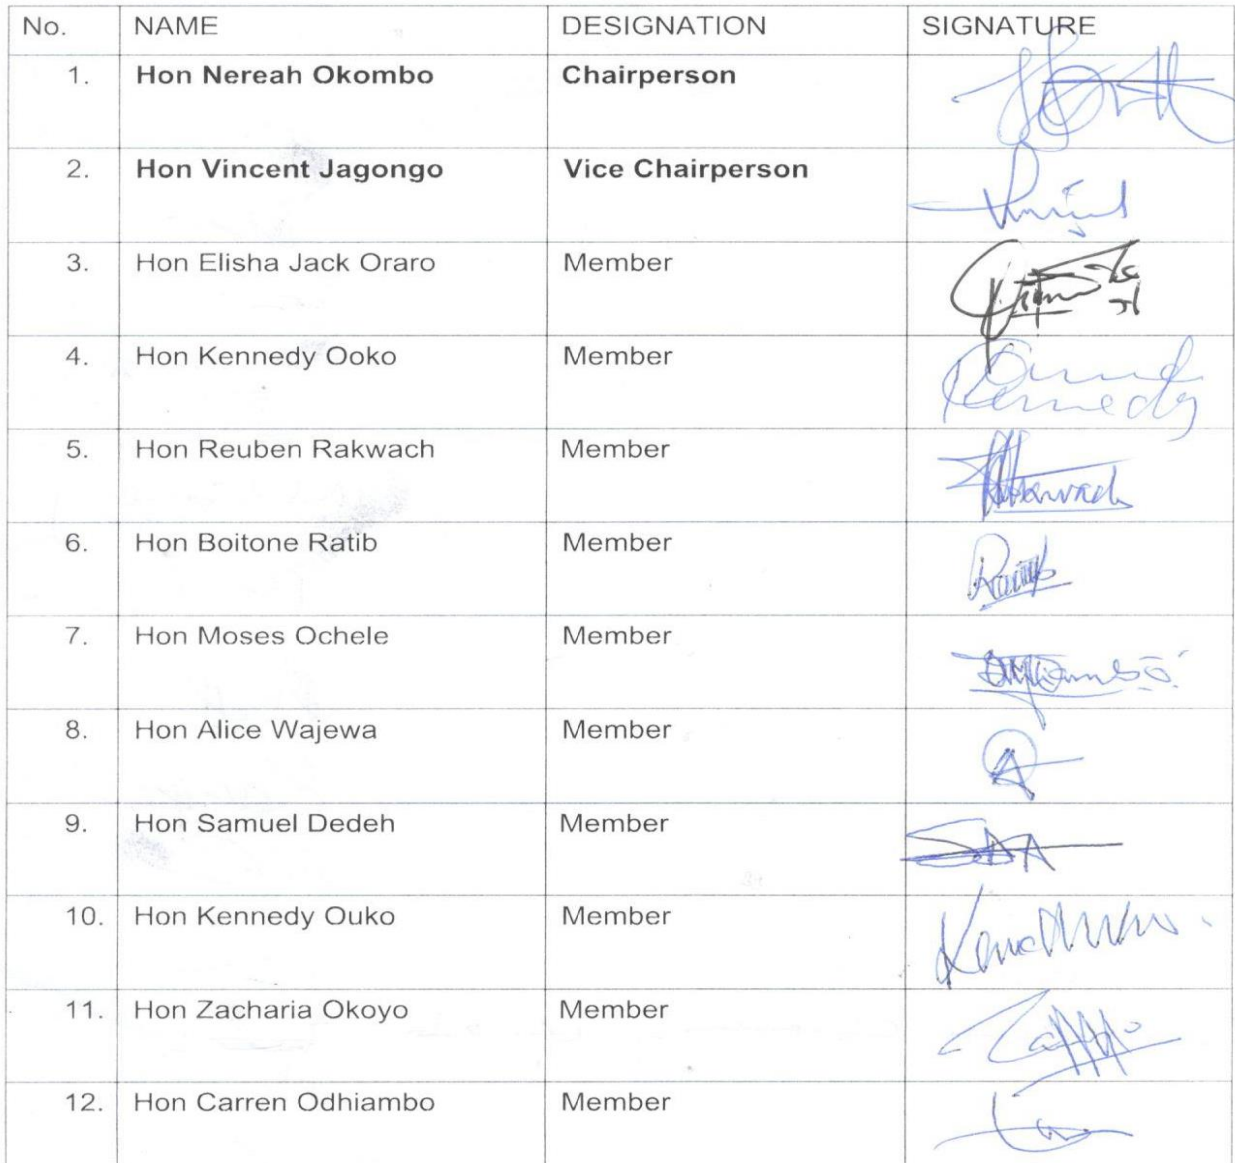 No. NAME DESIGNATION SIGNATURE
1. Hon Nereah Okombo Chairperson
2. Hon Vincent Jagongo Vice Chairperson
3. Hon Elisha Jack Oraro Member
4. Hon Kennedy Ooko Member
Kennedy
5. Hon Reuben Rakwach Member
6. Hon Boitone Ratib Member
7. Hon Moses Ochele Member
8. Hon Alice Wajewa Member
9. Hon Samuel Dedeh Member
10. Hon Kennedy Ouko Member
11. Hon Zacharia Okoyo Member
12. Hon Carren Odhiambo Member